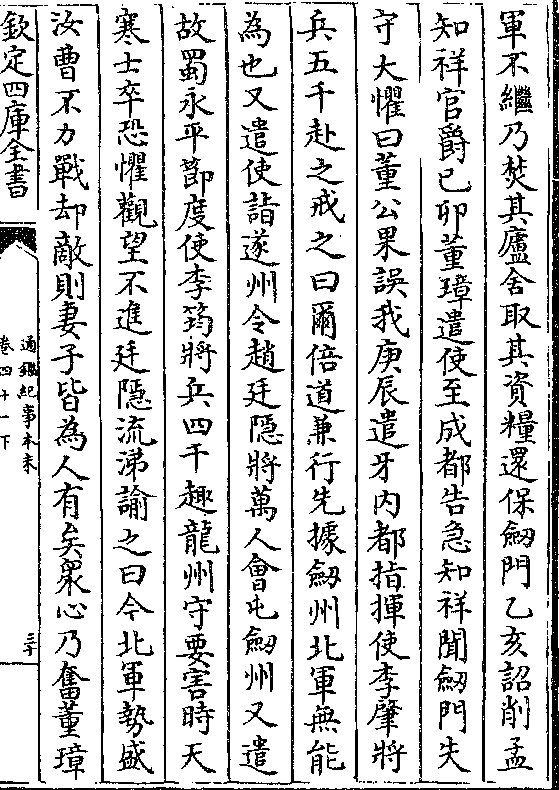 軍不繼乃焚其廬舍取其資糧還保劔門乙亥詔削孟
知祥官爵己卯董璋遣使至成都告急知祥聞劔門失
守大懼曰董公果誤我庚辰遣牙內都指揮使李肇將
兵五千赴之戒之曰爾倍道兼行先據劔州北軍無能
為也又遣使詣遂州令趙廷隱將萬人會屯劔州又遣
故蜀永平節度使李筠將兵四千趣龍州守要害時天
寒士卒恐懼觀望不進廷隱流涕諭之曰今北軍勢盛
汝曹不力戰却敵則妻子皆為人有矣衆心乃奮董璋
欽定四庫全書
通鑑紀事本末
卷四十一下
三十